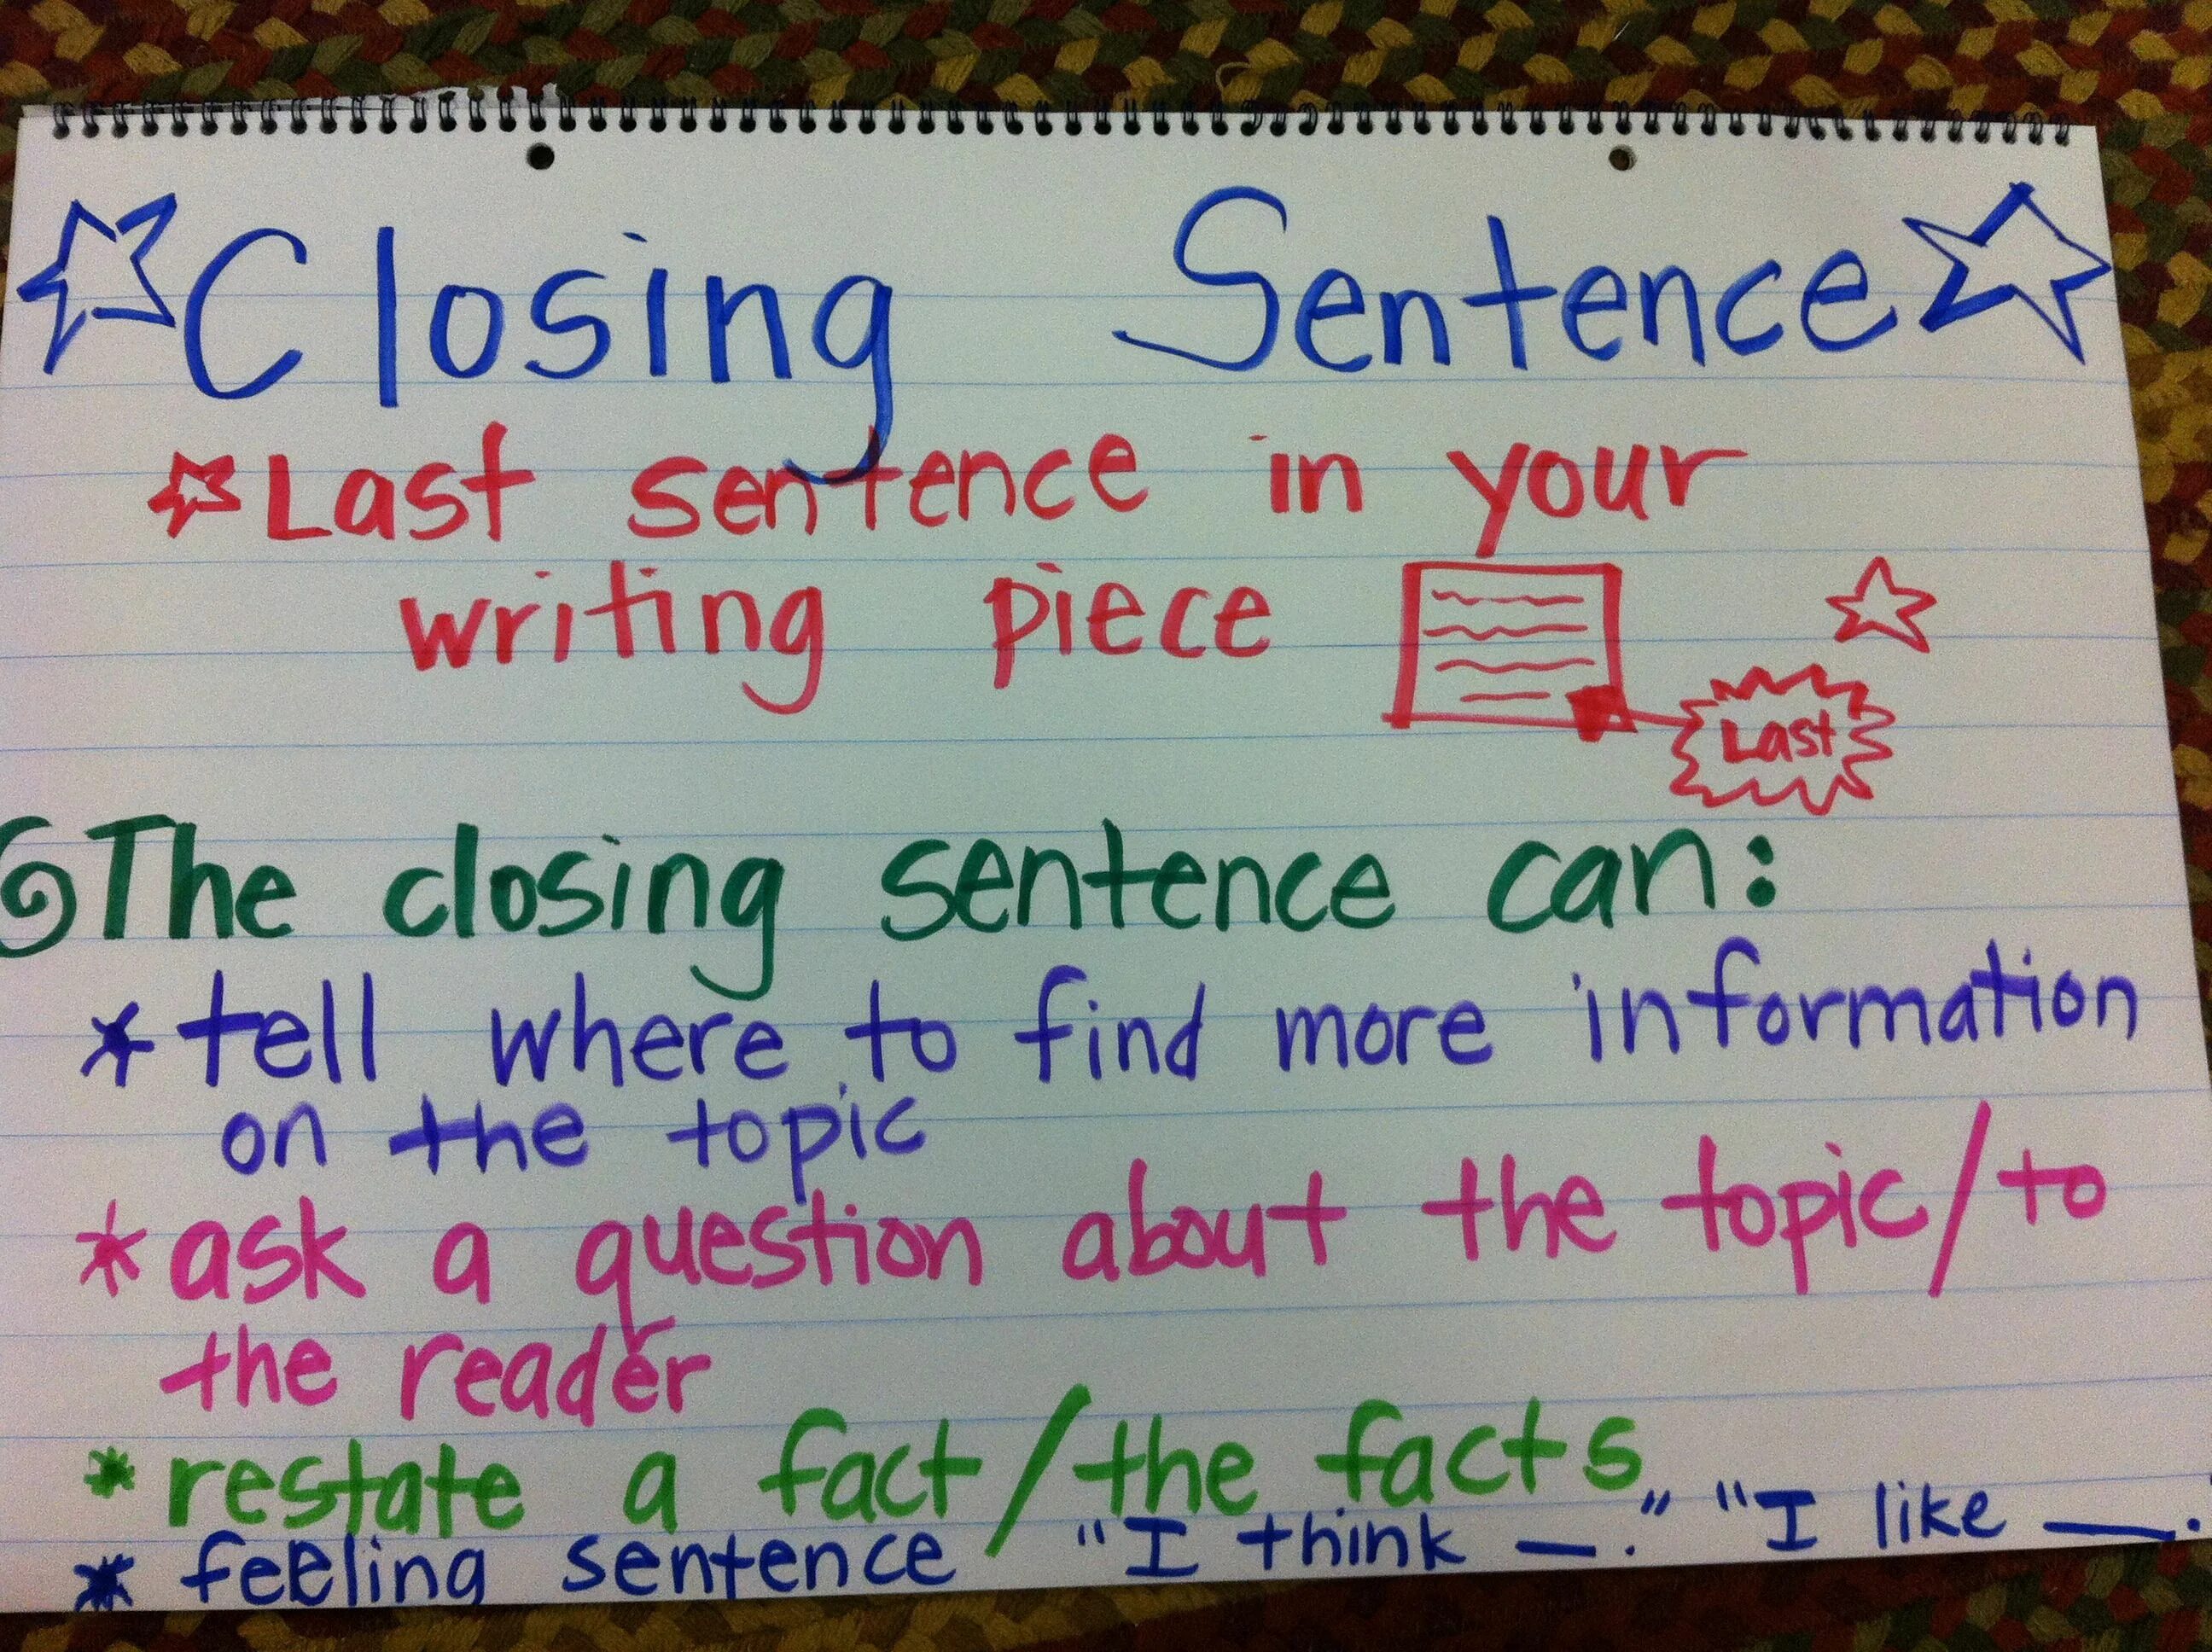 Closing Sentence
Last sentence in your
writing piece
Last
The closing sentence can:
* tell where to find more information
on the topic
* ask a question about the topic/to
the reader
* restate a fact/the facts
* feeling sentence "I think __." "I like __.